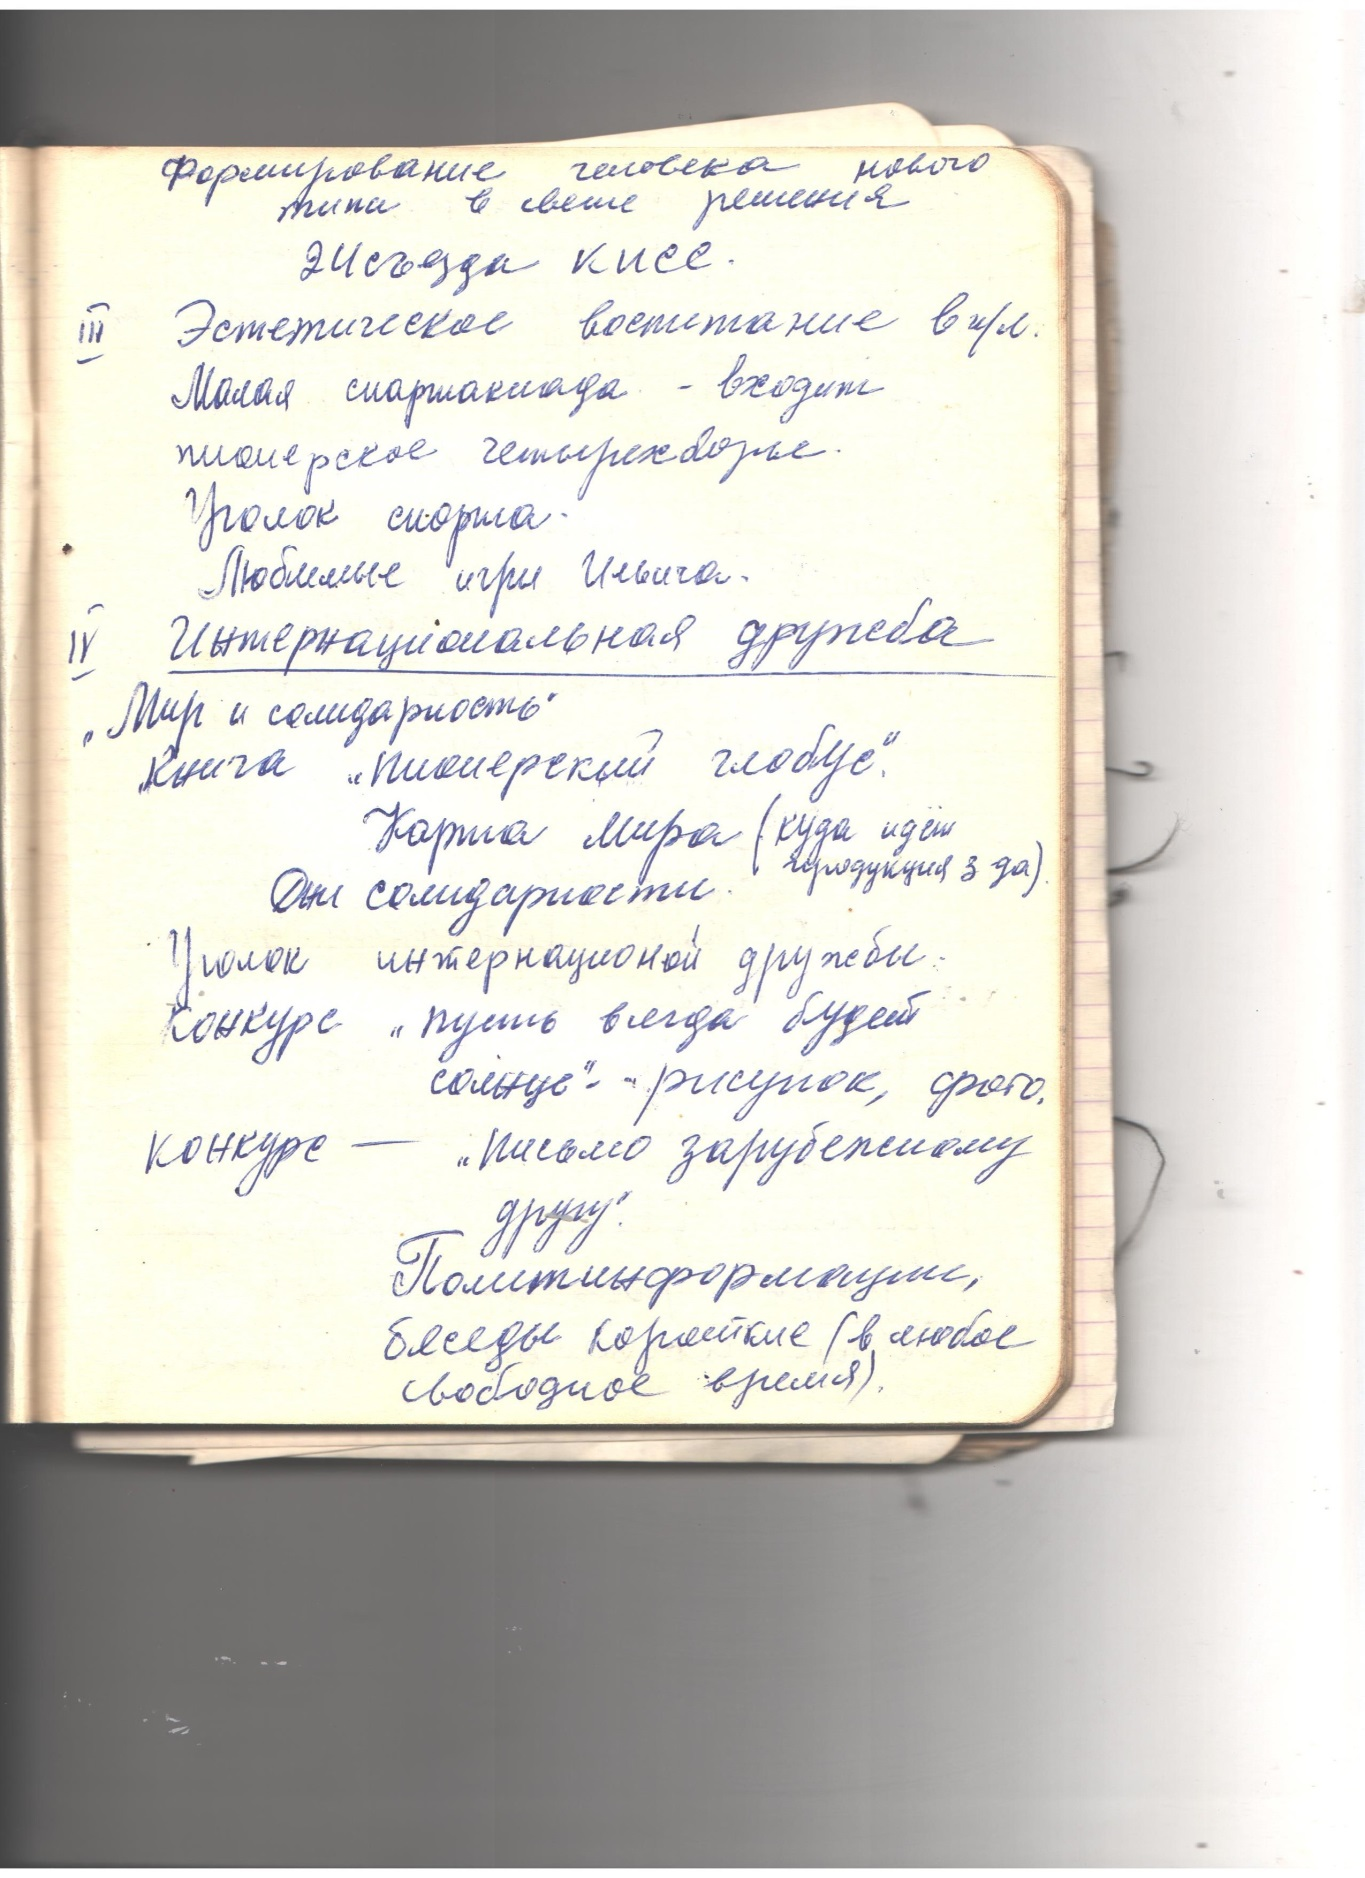 Формирование человека нового
типа в свете решения
24 съезда КПСС.
III Эстетическое воспитание в п/л.
Малая спартакиада - входит
пионерское четырехборье.
Уголок спорта.
Любимые игры Ильича.
IV Интернациональная дружба
„Мир и солидарность"
„Книга „Пионерский глобус".
Карта Мира (куда идёт
продукция з-да).
Дни солидарности.
Уголок интернационой дружбы.
Конкурс „Пусть всегда будет
солнце" - рисунок, фото.
Конкурс — „Письмо зарубежному
другу".
Политинформации,
беседы короткие (в любое
свободное время).